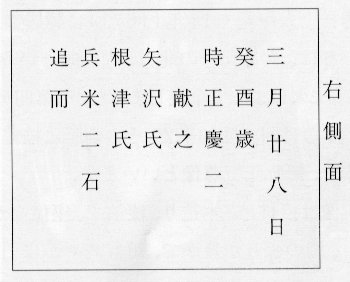 右側面
三月廿八日
癸酉歳
時正慶二
献之
矢沢氏
根津氏
兵米二石
追而